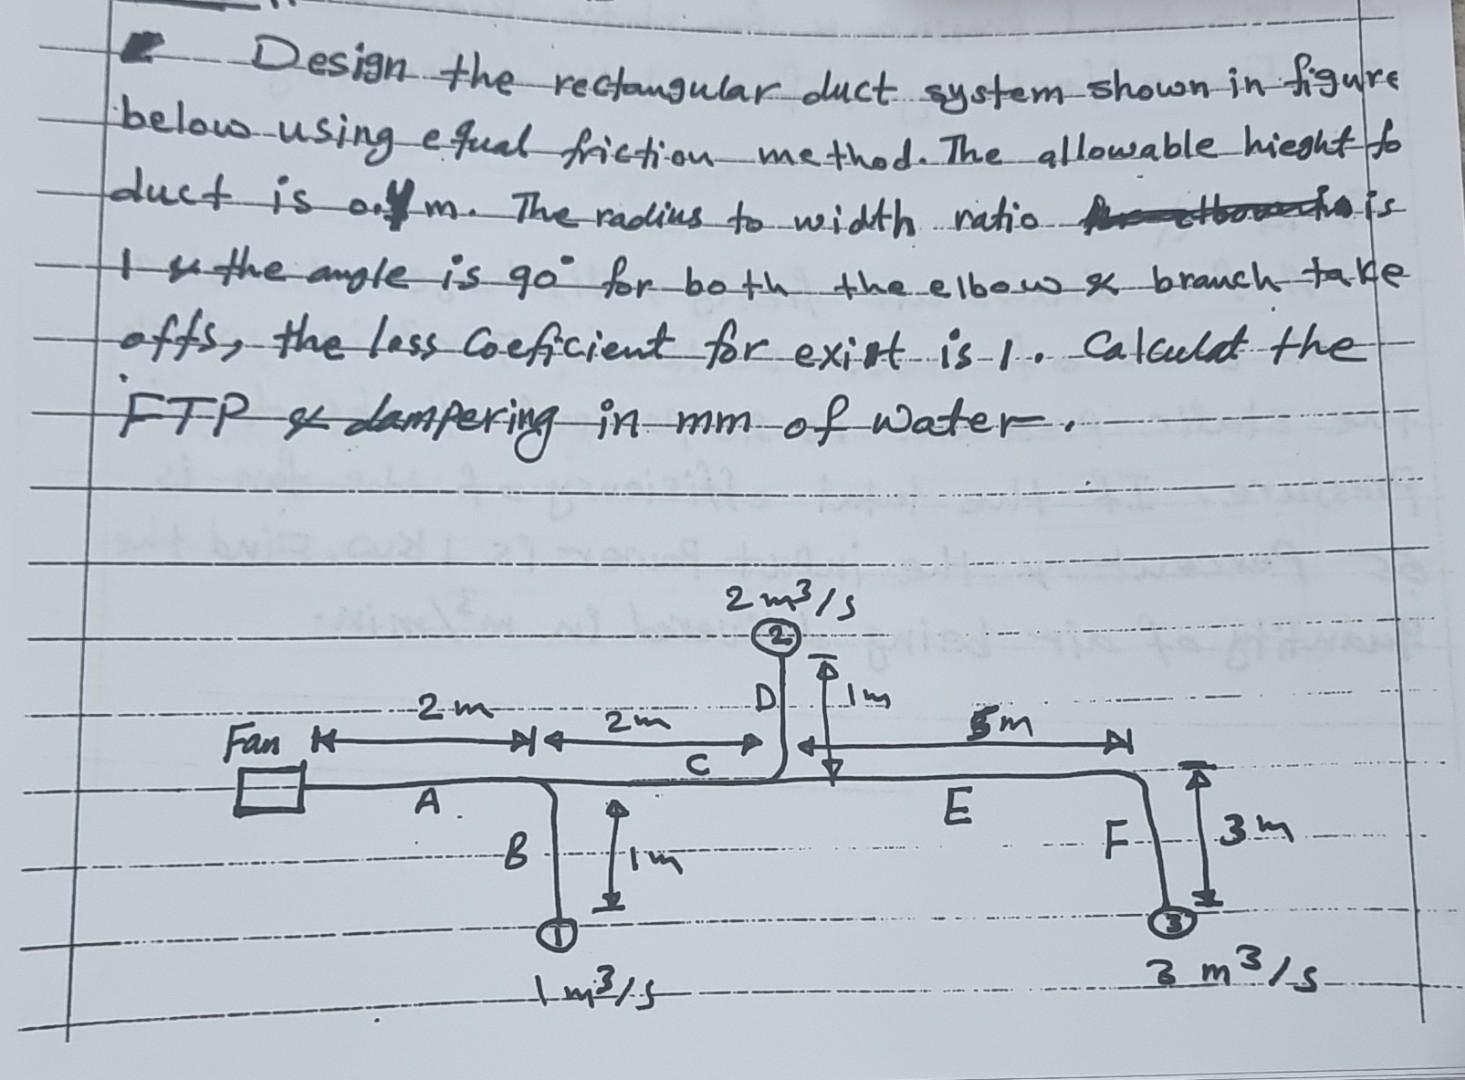 Design the rectangular duct system shown in figure
below using equal friction method. The allowable hieght to
duct is 0.4 m. The radius to width ratio is
1 & the angle is 90° for both the elbow & branch take
offs, the loss Coeficient for exist is 1. Calculat the
FTP & dampering in mm of water.
2 m³/s
2
2 m
2m
D
1m
5m
Fan
C
A
E
B
1m
F
3m
1
3
1 m³/s
3 m³/s